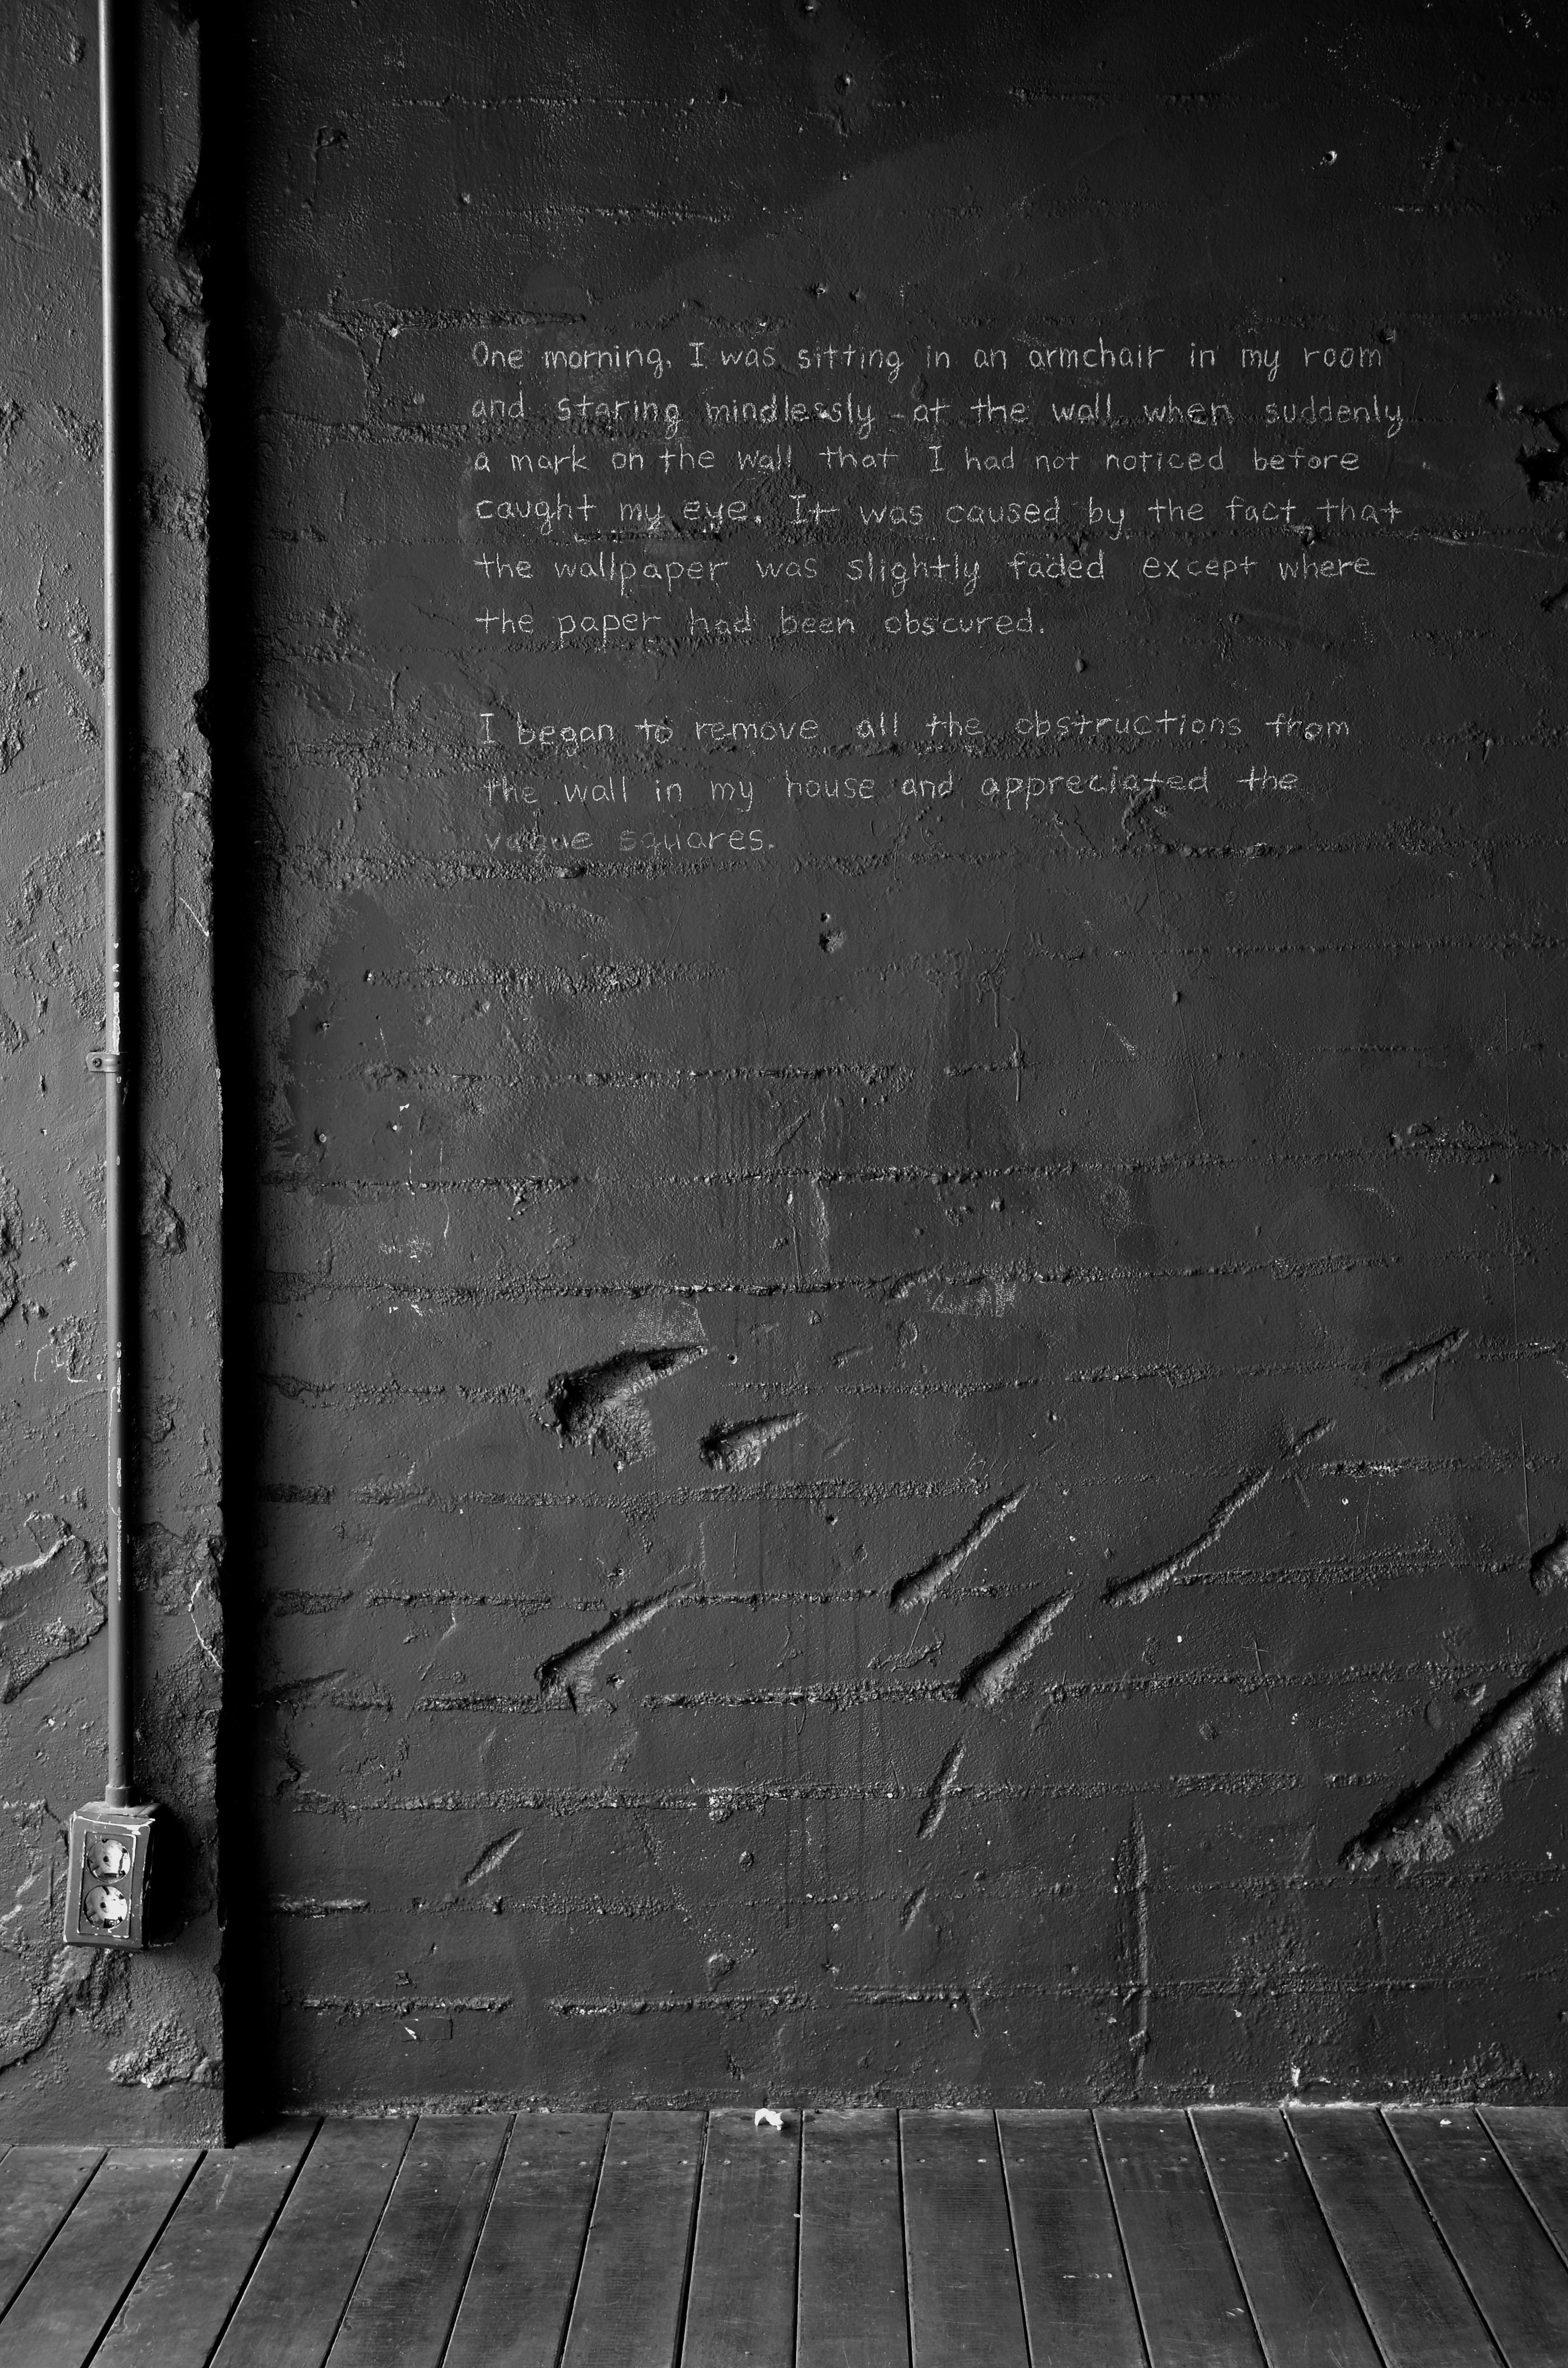 One morning, I was sitting in an armchair in my room
and staring mindlessly at the wall when suddenly
a mark on the wall that I had not noticed before
caught my eye. It was caused by the fact that
the wallpaper was slightly faded except where
the paper had been obscured.
I began to remove all the obstructions from
the wall in my house and appreciated the
vague squares.